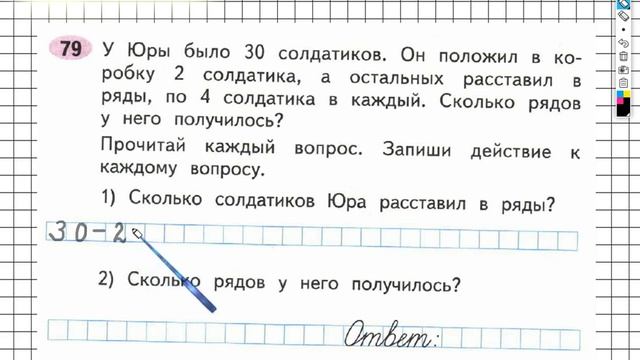 79 У Юры было 30 солдатиков. Он положил в ко-
робку 2 солдатика, а остальных расставил в
ряды, по 4 солдатика в каждый. Сколько рядов
у него получилось?
Прочитай каждый вопрос. Запиши действие к
каждому вопросу.
1) Сколько солдатиков Юра расставил в ряды?
30-2
2) Сколько рядов у него получилось?
Ответ: